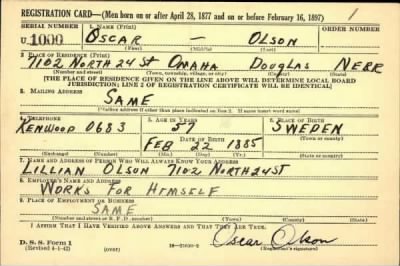 REGISTRATION CARD—(Men born on or after April 28, 1877 and on or before February 16, 1897)
SERIAL NUMBER 1. NAME (Print) ORDER NUMBER
U 1000 OSCAR — OLSON
(First) (Middle) (Last)
2. PLACE OF RESIDENCE (Print)
7102 NORTH 24 ST OMAHA DOUGLAS NEBR
(Number and street) (Town, township, village, or city) (County) (State)
[THE PLACE OF RESIDENCE GIVEN ON THE LINE ABOVE WILL DETERMINE LOCAL BOARD
JURISDICTION; LINE 2 OF REGISTRATION CERTIFICATE WILL BE IDENTICAL]
3. MAILING ADDRESS
SAME
[Mailing address if other than place indicated on line 2. If same insert word same]
4. TELEPHONE 5. AGE IN YEARS 6. PLACE OF BIRTH
KENWOOD 0683 57 SWEDEN
DATE OF BIRTH (Town or county)
FEB 22 1885
(Mo.) (Day) (Yr.) (State or country)
7. NAME AND ADDRESS OF PERSON WHO WILL ALWAYS KNOW YOUR ADDRESS
LILLIAN OLSON 7102 NORTH 24 ST
8. EMPLOYER'S NAME AND ADDRESS
WORKS FOR HIMSELF
9. PLACE OF EMPLOYMENT OR BUSINESS
SAME
(Number and street or R. F. D. number) (Town) (County) (State)
I AFFIRM THAT I HAVE VERIFIED ABOVE ANSWERS AND THAT THEY ARE TRUE.
D. S. S. Form 1 Oscar Olson
(Revised 4-1-42) (over) (Registrant's signature)